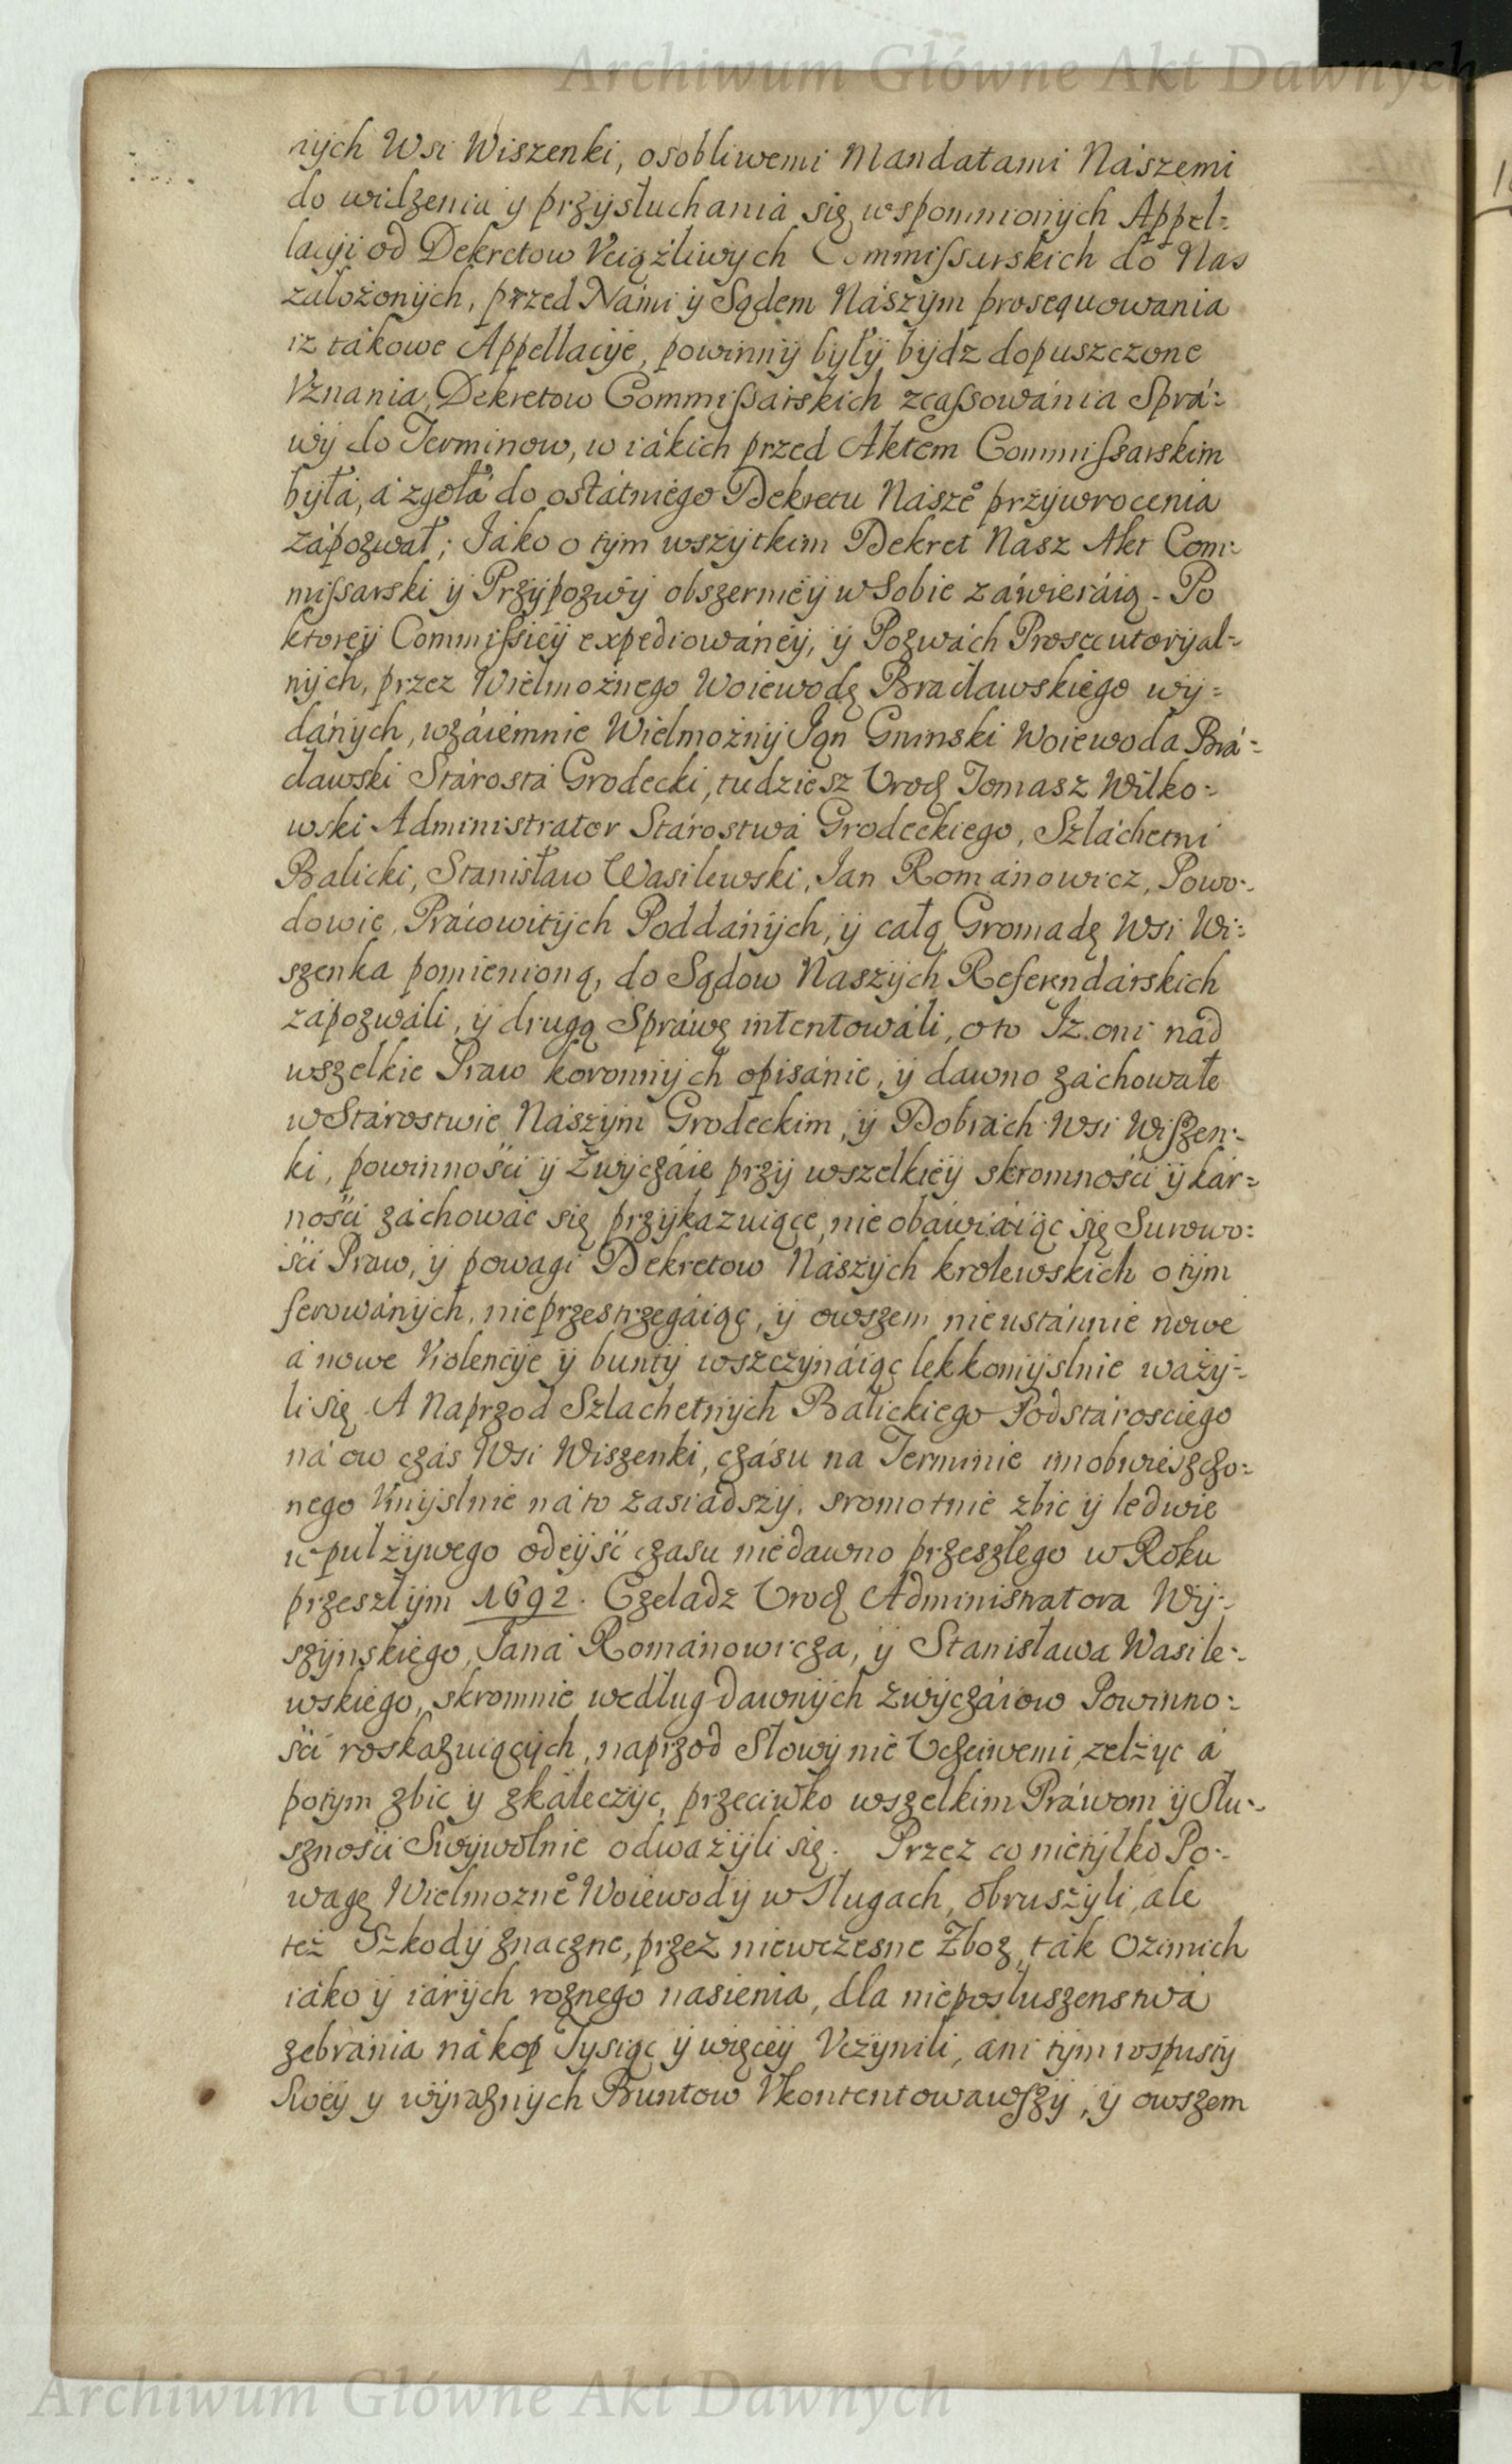 Archiwum Główne Akt Dawnych
nych Wsi Wiszenki, osobliwemi Mandatami Nászemi
do widzenia y przysłuchania się wspomnionych Appel=
lacyi od Dekretow Vciążliwych Commissarskich do Nas
założonych, przed Námi y Sądem Nászym prosequowania
iz tákowe Appellacye, powinny były bydz dopuszczone
Vznania, Dekretow Commissarskich zcassowánia Sprá=
wy do Terminow, w iákich przed Aktem Commissarskim
byłá, á zgołá do ostátniego Dekretu Nászeo przywrocenia
zápozwał; Jáko o tym wszytkim Dekret Nasz Akt Com=
missarski y Przypozwy obszerniey w Sobie záwieráią. Po
ktorey Commissiey expediowáney, y Pozwách Prosecutoryal=
nych, przez Wielmożnego Woiewodę Bracławskiego wy=
dánych, wzáiemnie Wielmożny Jan Gninski Woiewoda Brá=
cławski Stárostá Grodecki, tudziesz Urodz Tomasz Wilko=
wski Administrator Stárostwá Grodeckiego, Szláchetni
Balicki, Stanisław Wasilewski, Jan Románowicz, Powo=
dowie, Prácowitych Poddánych, y całą Gromadę Wsi Wi=
szenka pomienioną, do Sądow Naszych Referendárskich
zápozwáli, y drugą Spráwę intentowáli, oto Iz oni nád
wszelkie Praw koronnych opisánie, y dawno záchowałe
w Stárostwie Nászym Grodeckim, y Dobrách Wsi Wiszen=
ki, powinności y Zwyczáie przy wszelkiey skromności y kár=
ności záchowáć się przykázuiące, nie obáwiáiąc się Surowo=
ści Praw, y powagi Dekretow Nászych krolewskich o tym
ferowánych, nieprzestrzegáiąc, y owszem nieustánnie nowe
á nowe Violencye y bunty wszczynáiąc lekkomyslnie waży=
li się. A Naprzod Szlachetnych Balickiego Podstárosciego
ná ow czás Wsi Wiszenki, czásu na Terminie nieobwieszczo=
nego Vmyslnie ná to zasiadszy, sromotnie zbic y ledwie
w puł zywego odeyść czasu niedawno przeszłego w Roku
przeszłym 1692. Czeladz Urodz Administratora Wy=
szynskiego, Janá Románowicza, y Stanisława Wasile=
wskiego, skromnie według dawnych zwyczáiow Powinno=
ści roskazuiących, naprzod Słowy nie Vczciwemi zelżyc á
potym zbic y zkáleczyc, przeciwko wszelkim Práwom y Słu=
szności Swywolnie odważyli się. Przez co nietylko Po=
wagę Wielmożneo Woiewody w Sługach, obruszyli, ale
też Szkody znaczne, przez niewczesne Zboz, ták Ozimich
iáko y iárych roznego nasienia, dla nieposłuszenstwá
zebránia ná kop Tysiąc y więcey Vczynili, ani tym rospusty
Swey y wyraznych Buntow Vkontentowawszy, y owszem
Archiwum Główne Akt Dawnych